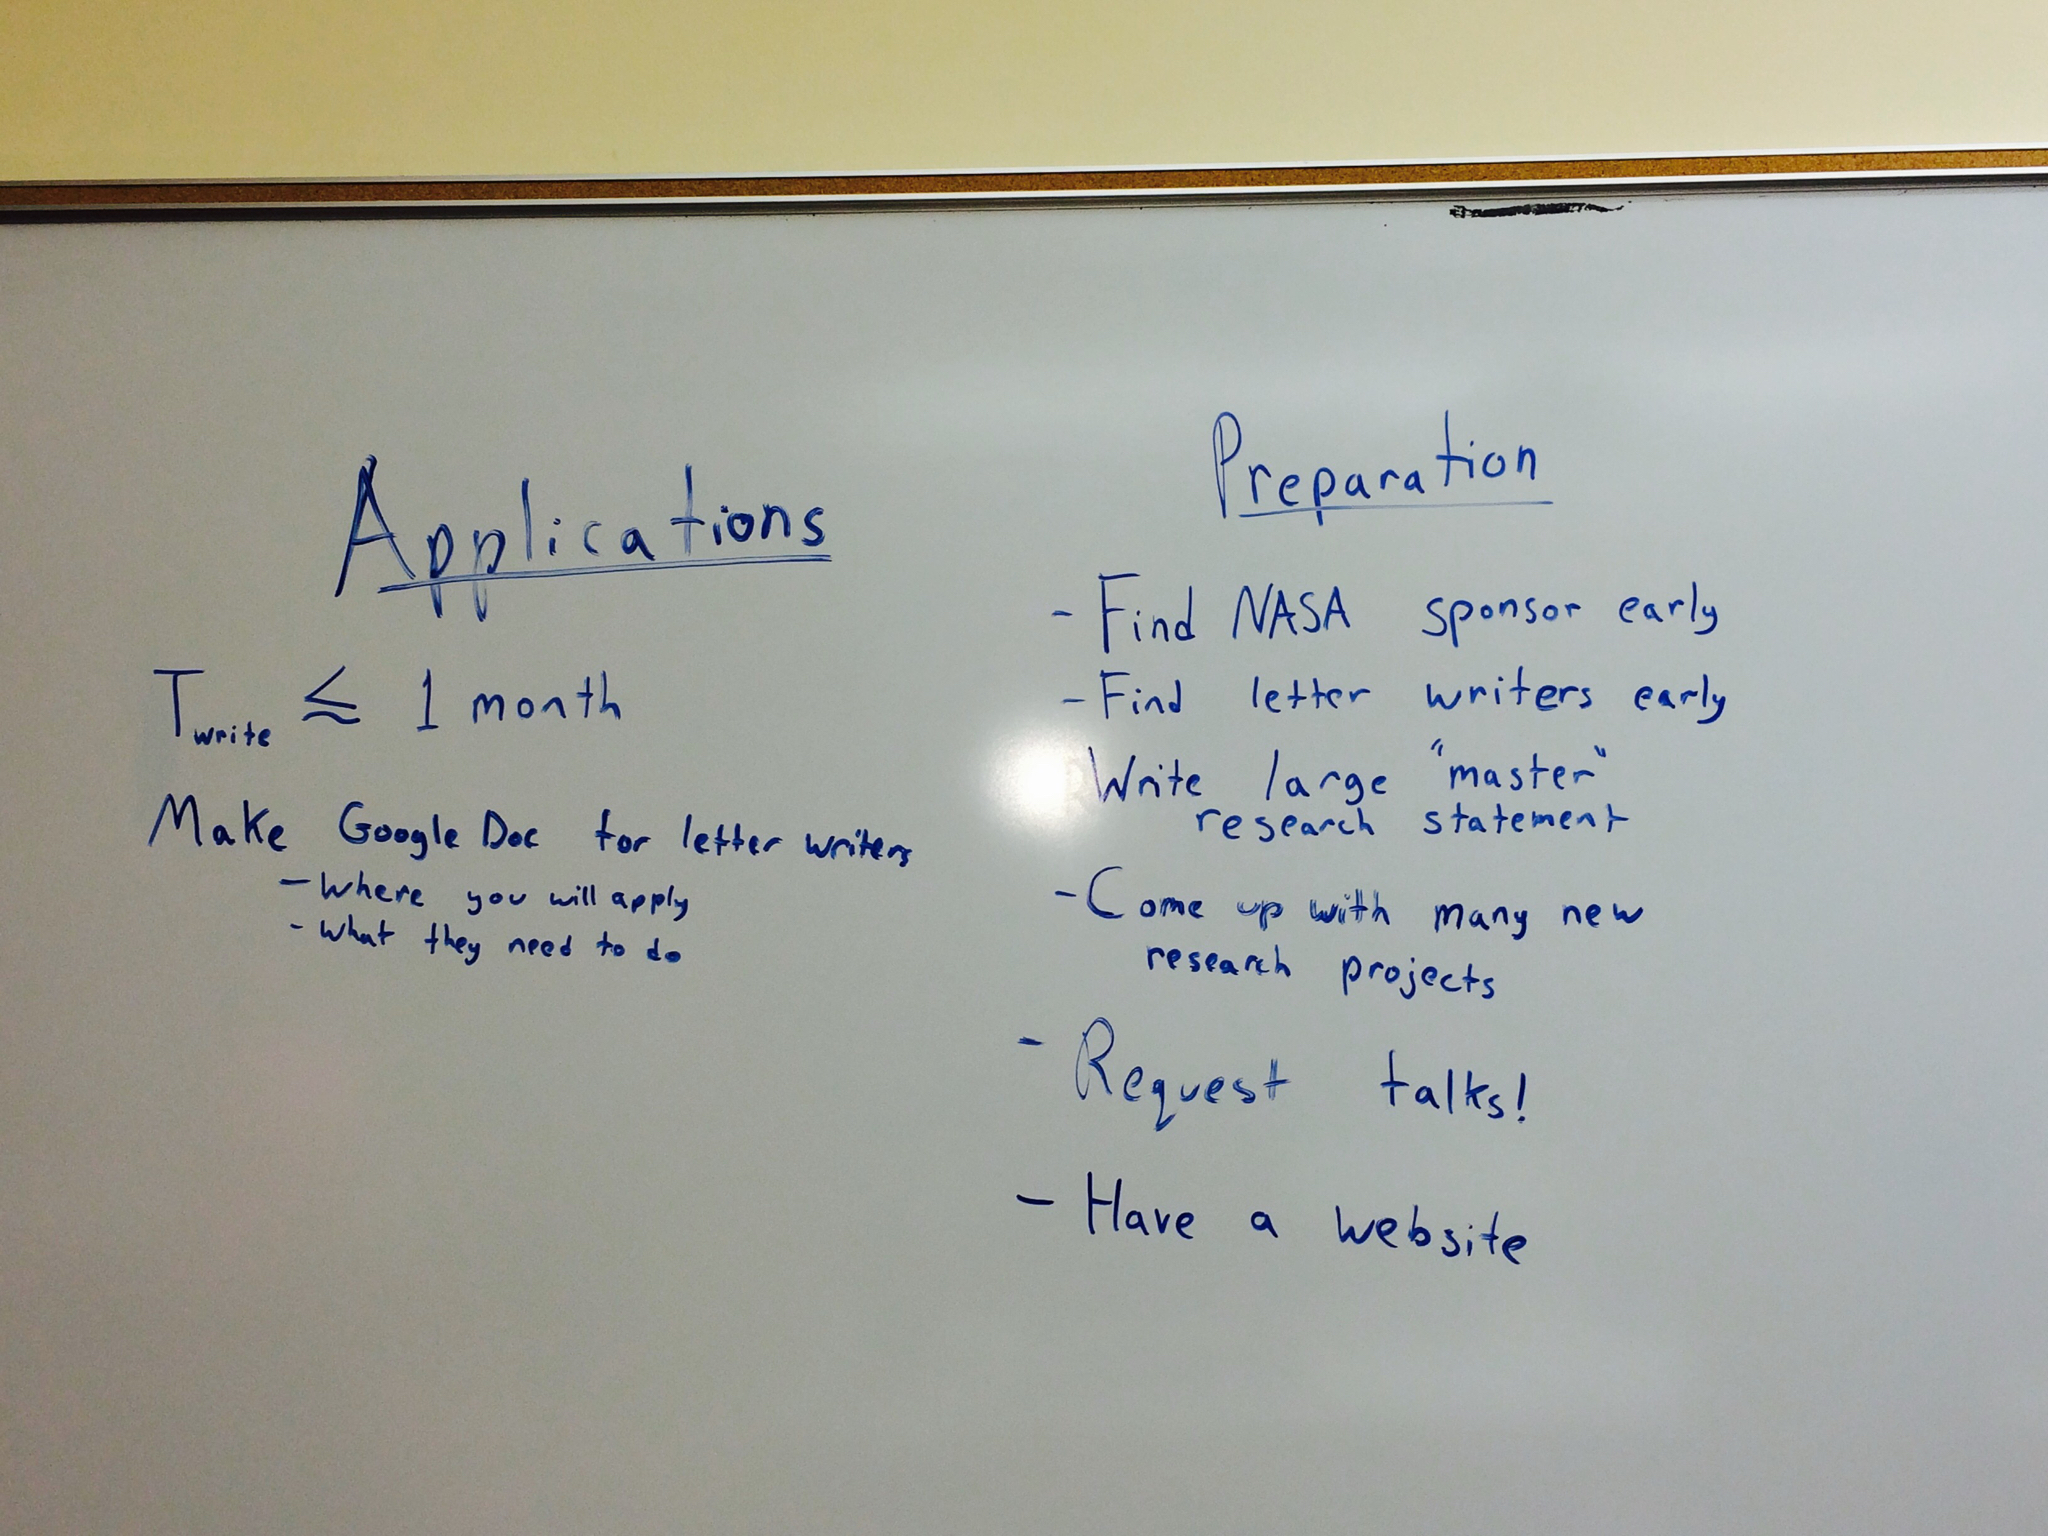 Applications
T_write ⪅ 1 month
Make Google Doc for letter writers
- Where you will apply
- What they need to do
Preparation
- Find NASA sponsor early
- Find letter writers early
Write large "master"
research statement
- Come up with many new
research projects
- Request talks!
- Have a website